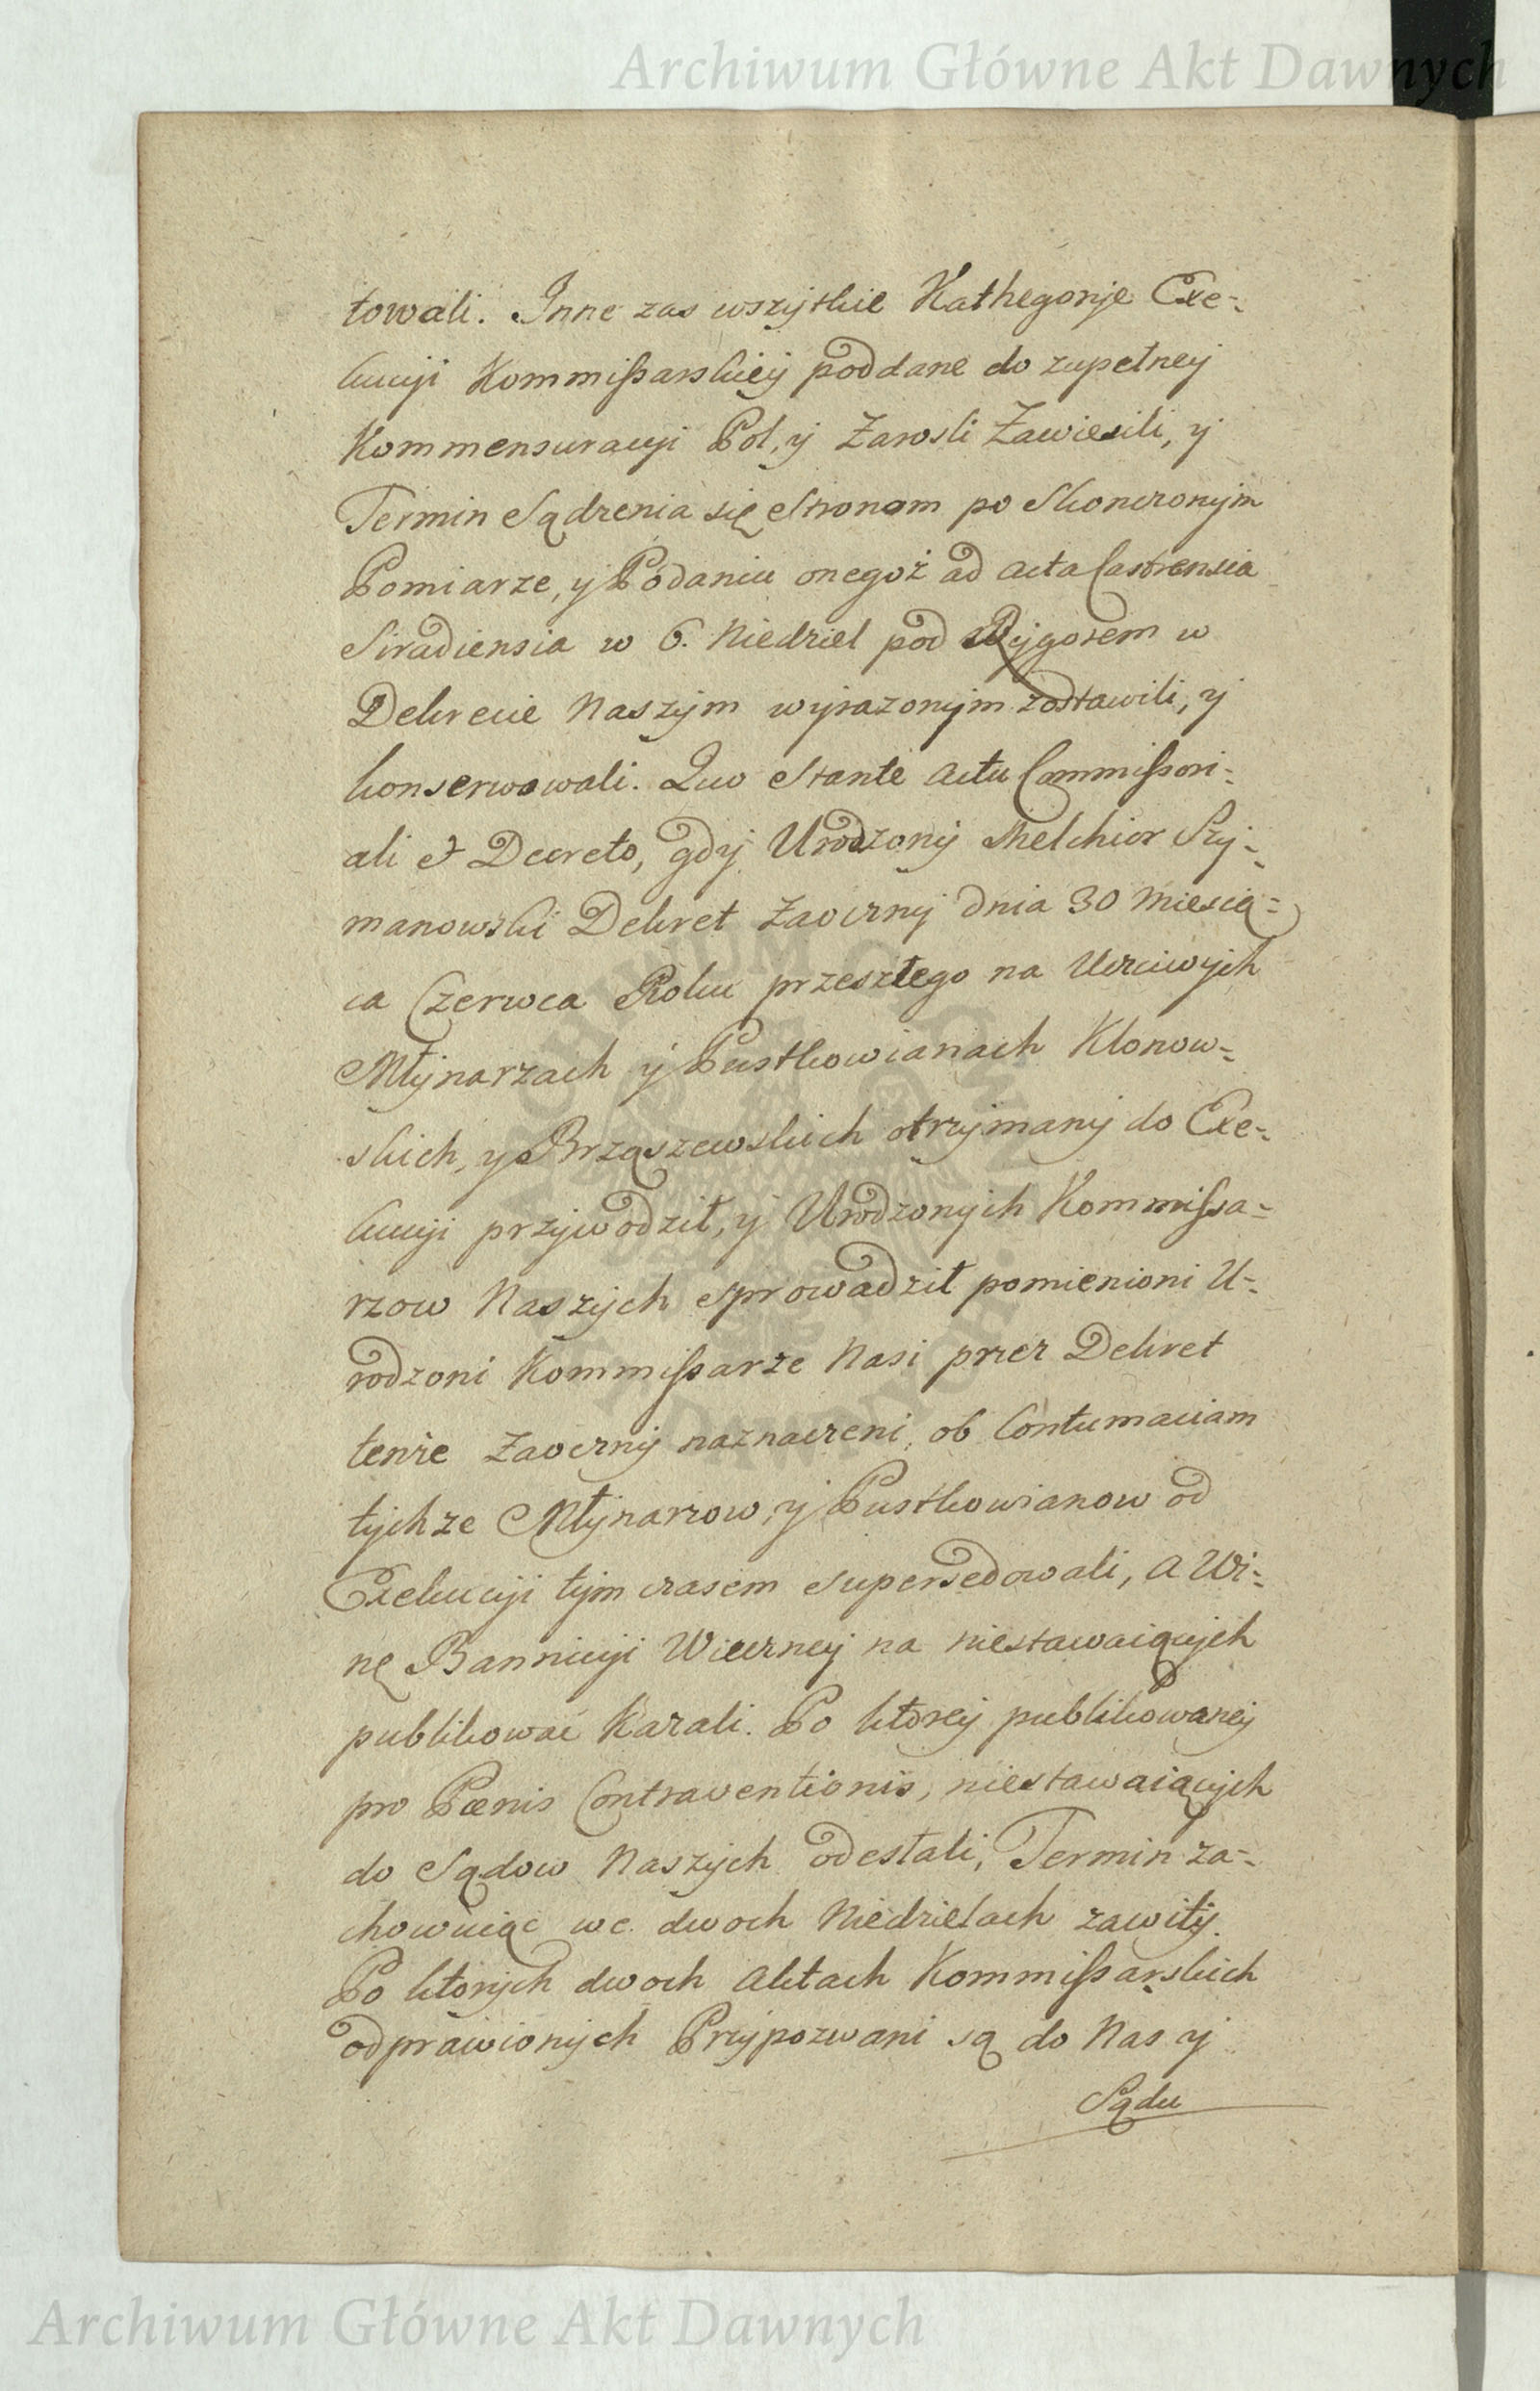 Archiwum Główne Akt Dawnych
towali. Inne zas wszystkie Kathegorye Exe-
kucyi Kommissarskiey poddane do zupełney
Kommensuracyi Pol, y Zarosli Zawiesili, y
Termin Sądzenia się Stronom po Skonczonym
Pomiarze, y Podaniu onegoż ad acta Castrensia
Siradiensia w 6. Niedziel pod Rygorem w
Dekrecie Naszym wyrazonym zostawili, y
konserwowali. Quo Stante actu Commissori-
ali et Decreto, gdy Urodzony Melchior Szy-
manowski Dekret Zaoczny dnia 30 Miesią-
ca Czerwca Roku przeszłego na Uczciwych
Młynarzach y Pustkowianach Klonow-
skich, y Brząszewskich otrzymany do Exe-
kucyi przywodził, y Urodzonych Kommissa-
rzow Naszych sprowadził pomienioni U-
rodzoni Kommissarze Nasi przez Dekret
tenże Zaoczny naznaczeni, ob Contumaciam
tychze Młynarzow, y Pustkowianow od
Exekucyi tym czasem supersedowali, a Wi-
nę Bannicyi Wieczney na niestawaiących
publikowac Kazali. Po ktorey publikowaney
pro Pœnis Contraventionis, niestawaiących
do Sądow Naszych odesłali, Termin za-
chowuiąc we dwoch Niedzielach zawity.
Po ktorych dwoch Aktach Kommissarskich
odprawionych Przypozwani są do Nas y
Sądu
Archiwum Główne Akt Dawnych